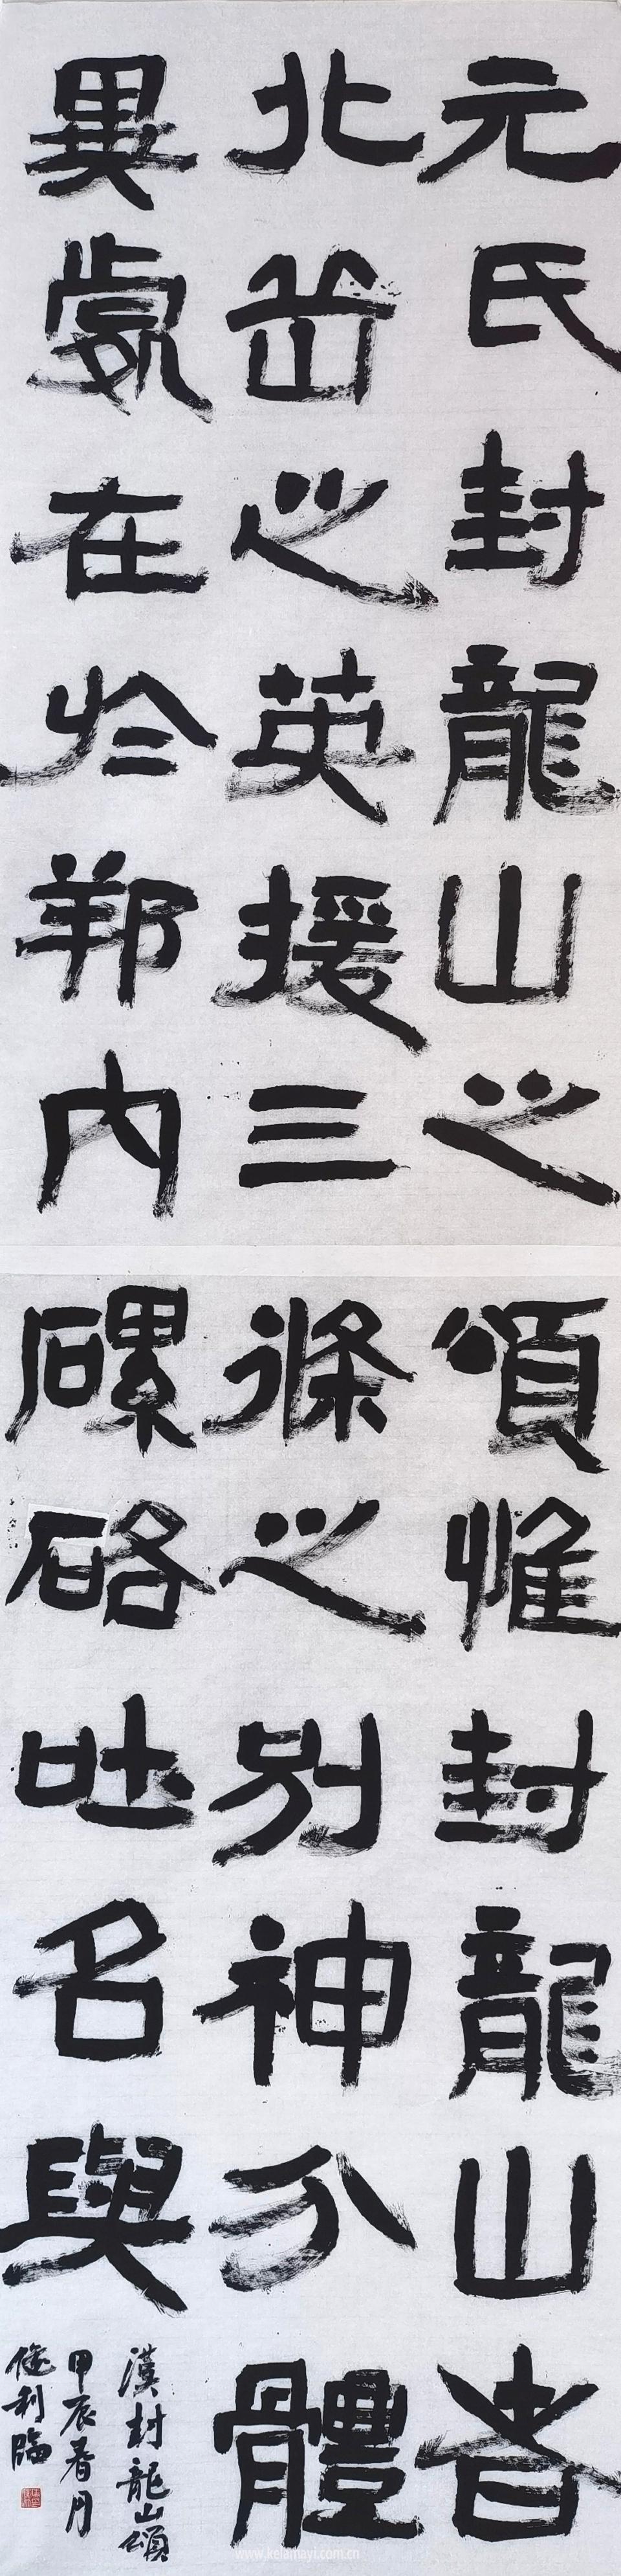 元氏封龍山之頌惟封龍山者
北岳之英援三條之別神分體
異處在於邦內磥硌吐名與
漢封龍山頌
甲辰春月
利臨
www.kelamayi.com.cn